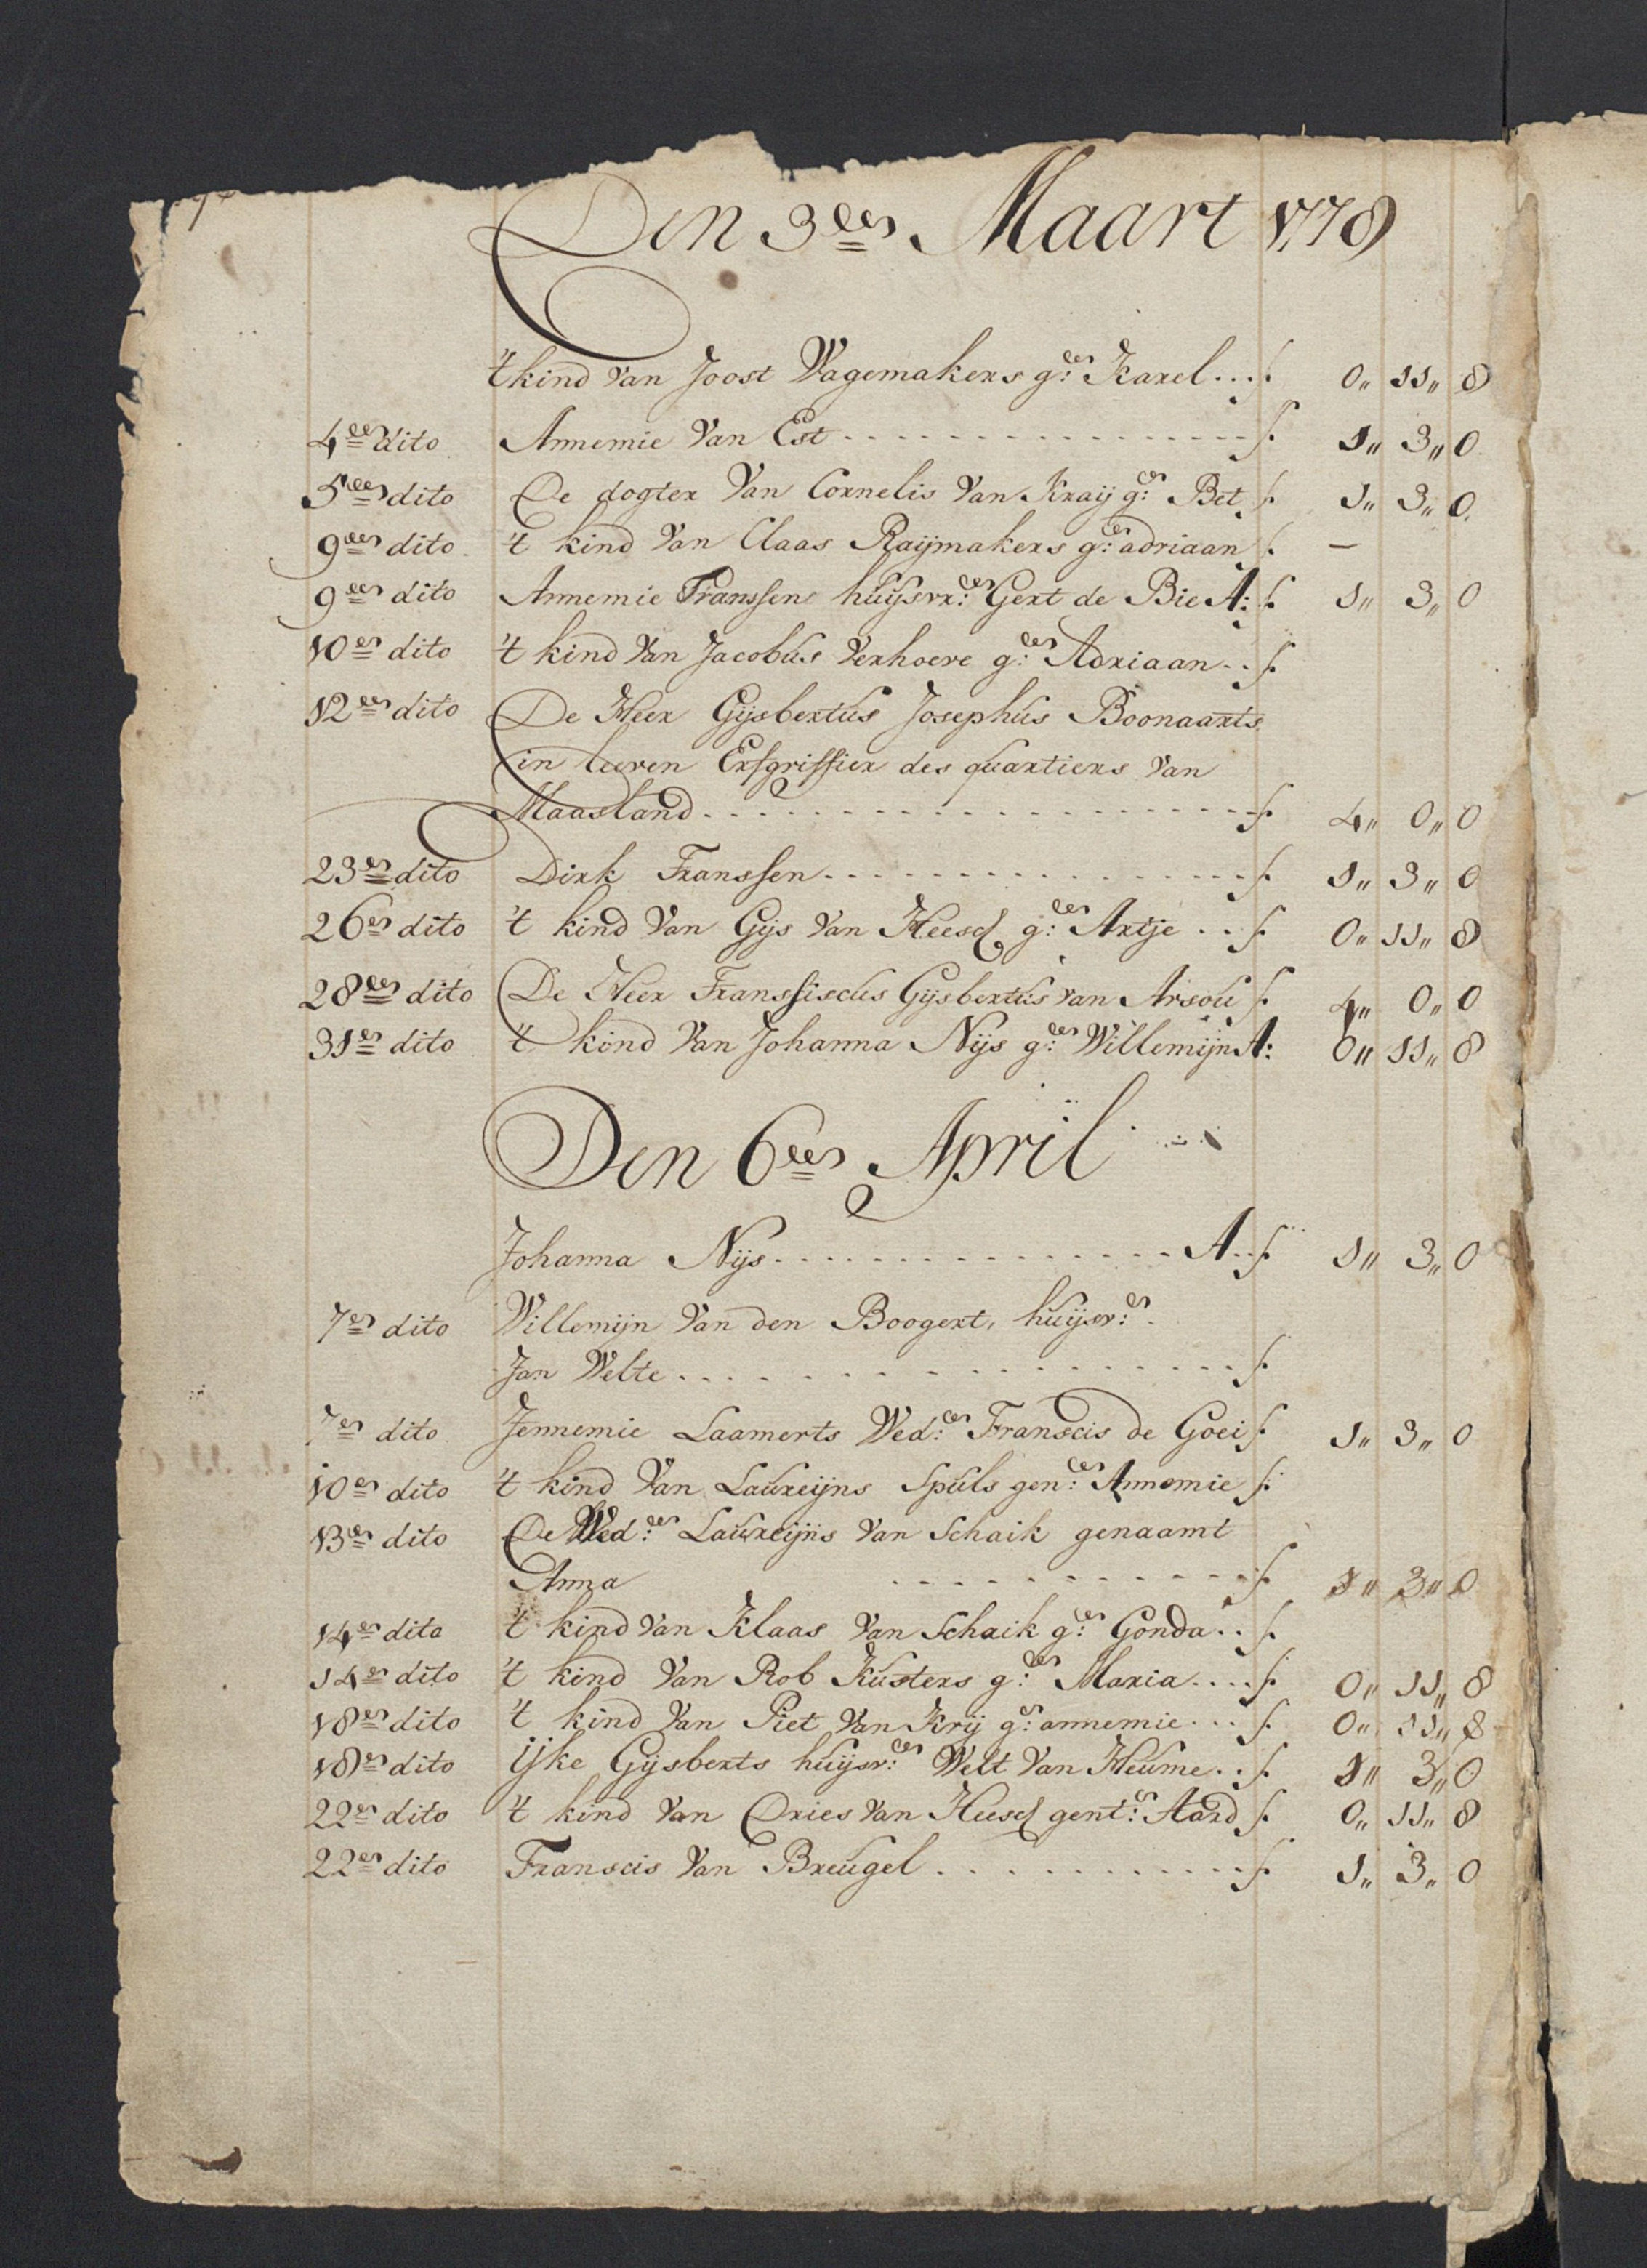 Den 3en Maart 1778
't kind van Joost Wagemakers g:en Karel ... f: 0,, 11,, 8
4en dito Annemie Van Est ... f: 1,, 3,, 0
5en dito De dogter Van Cornelis Van Kraij g:en Bet f: 1,, 3,, 0
9en dito 't kind Van Claas Raijmakers g:en adriaan f: —
9en dito Annemie Franssen huijsvr:en Gert de Bie A: f: 1,, 3,, 0
10en dito 't kind Van Jacobus Verhoeve g:en Adriaan .. f:
12en dito De Heer Gijsbertus Josephus Boonaarts
in leeven Erfgriffier des quartiers Van
Maasland ... f: 4,, 0,, 0
23en dito Dirk Franssen ... f: 1,, 3,, 0
26en dito 't kind Van Gijs Van Heesch g:en Artje .. f: 0,, 11,, 8
28en dito De Heer Franssiscus Gijsbertus van Arsou f: 4,, 0,, 0
31en dito 't kind Van Johanna Nijs g:en Willemijn A: 0,, 11,, 8
Den 6en April
Johanna Nijs ... A.. f: 1,, 3,, 0
7en dito Willemijn Van den Boogert, huijsv:en
Jan Welte ... f:
7en dito Jennemie Laamerts Wed:en Franscis de Goei f: 1,, 3,, 0
10en dito 't kind Van Laureijns Spuls gen:en Annemie f:
13en dito De Wed:en Laureijns Van Schaik genaamt
Anna ... f: 1,, 3,, 0
14en dito 't kind van Klaas Van Schaik g:en Gonda .. f:
14en dito 't kind Van Rob Kusters g:en Maria .... f: 0,, 11,, 8
18en dito 't kind Van Piet Van Krij g:en annemie ... f: 0,, 11,, 8
18en dito ijke Gijsberts huijsv:en Welt Van Heume .. f: 1,, 3,, 0
22en dito 't kind Van Dries Van Heesch gent:en Aard f: 0,, 11,, 8
22en dito Franscis Van Breugel ... f: 1,, 3,, 0